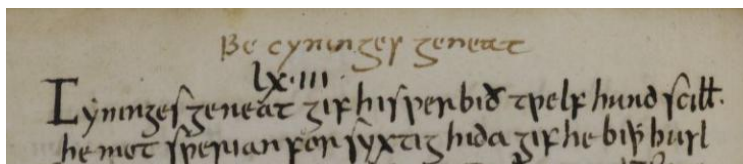 Be cyninges geneat
lx·iii·
Cyninges geneat gif his ƿer bið tƿelf hund scill̄.
he mot sƿerian for syxtig hida gif he biþ husl